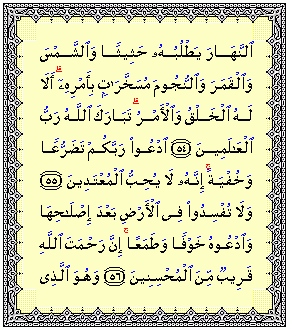 ٱلنَّهَارَ يَطْلُبُهُۥ حَثِيثًا وَٱلشَّمْسَ
وَٱلْقَمَرَ وَٱلنُّجُومَ مُسَخَّرَٰتٍۭ بِأَمْرِهِۦٓ ۗ أَلَا
لَهُ ٱلْخَلْقُ وَٱلْأَمْرُ ۗ تَبَارَكَ ٱللَّهُ رَبُّ
ٱلْعَٰلَمِينَ ﴿٥٤﴾ ٱدْعُوا۟ رَبَّكُمْ تَضَرُّعًا
وَخُفْيَةً ۚ إِنَّهُۥ لَا يُحِبُّ ٱلْمُعْتَدِينَ ﴿٥٥﴾
وَلَا تُفْسِدُوا۟ فِى ٱلْأَرْضِ بَعْدَ إِصْلَٰحِهَا
وَٱدْعُوهُ خَوْفًا وَطَمَعًا ۚ إِنَّ رَحْمَتَ ٱللَّهِ
قَرِيبٌ مِّنَ ٱلْمُحْسِنِينَ ﴿٥٦﴾ وَهُوَ ٱلَّذِى